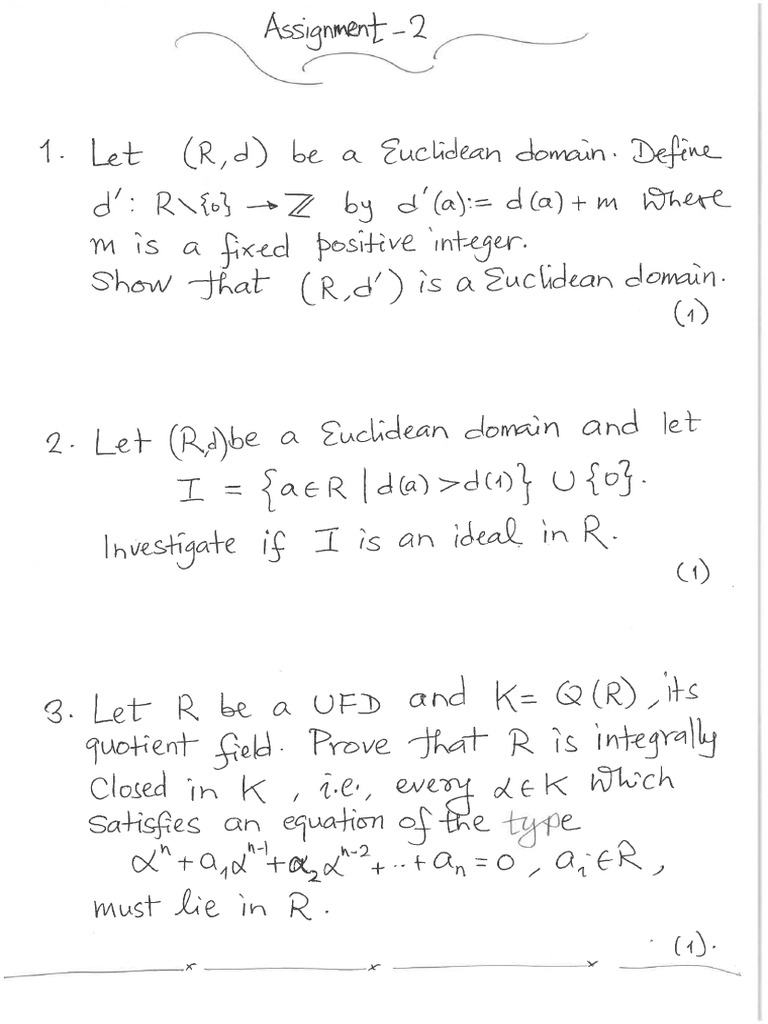 Assignment-2
1. Let (R,d) be a Euclidean domain. Define
d': R\{0} → ℤ by d'(a):= d(a)+m where
m is a fixed positive integer.
Show that (R,d') is a Euclidean domain.
(1)
2. Let (R,d) be a Euclidean domain and let
I = {a∈R | d(a)>d(1)} ∪ {0}.
Investigate if I is an ideal in R.
(1)
3. Let R be a UFD and K= Q(R), its
quotient field. Prove that R is integrally
closed in K, i.e., every α∈K which
satisfies an equation of the type
αⁿ+a₁αⁿ⁻¹+a₂αⁿ⁻²+..+aₙ=0, aᵢ∈R,
must lie in R.
(1).